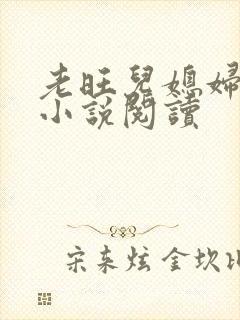 老旺兒媳婦
小說閱讀
宋来炫 金坎比